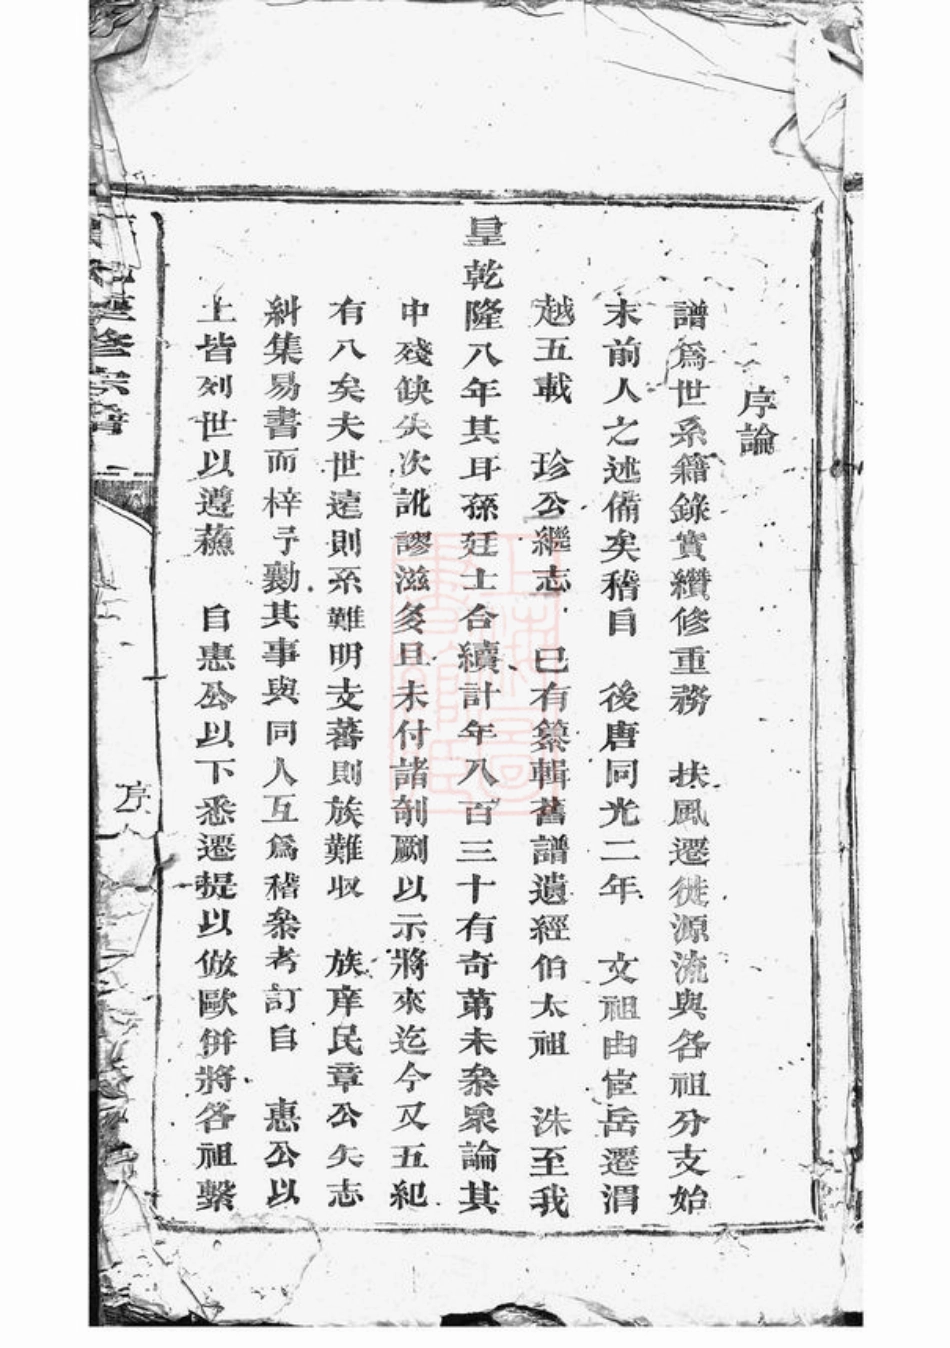 序論
譜爲世系籍錄實纘修重務　扶風遷徙源流與各祖分支始
末前人之述備矣稽自　後唐同光二年　文祖由宦岳遷渭
越五載　珍公繼志　已有纂輯舊譜遺經伯太祖　洙至我
皇乾隆八年其耳孫廷士合續計年八百三十有奇苐未叅衆論其
中殘缺失次訛謬滋多且未付諸剞劂以示將來迄今又五紀
有八矣夫世遠則系難明支蕃則族難収　族庠民章公矢志
糾集易書而梓予勷其事與同人互爲稽叅考訂自　惠公以
上皆列世以遵蘓　自惠公以下悉遷提以倣歐併將各祖繫
修宗譜
序